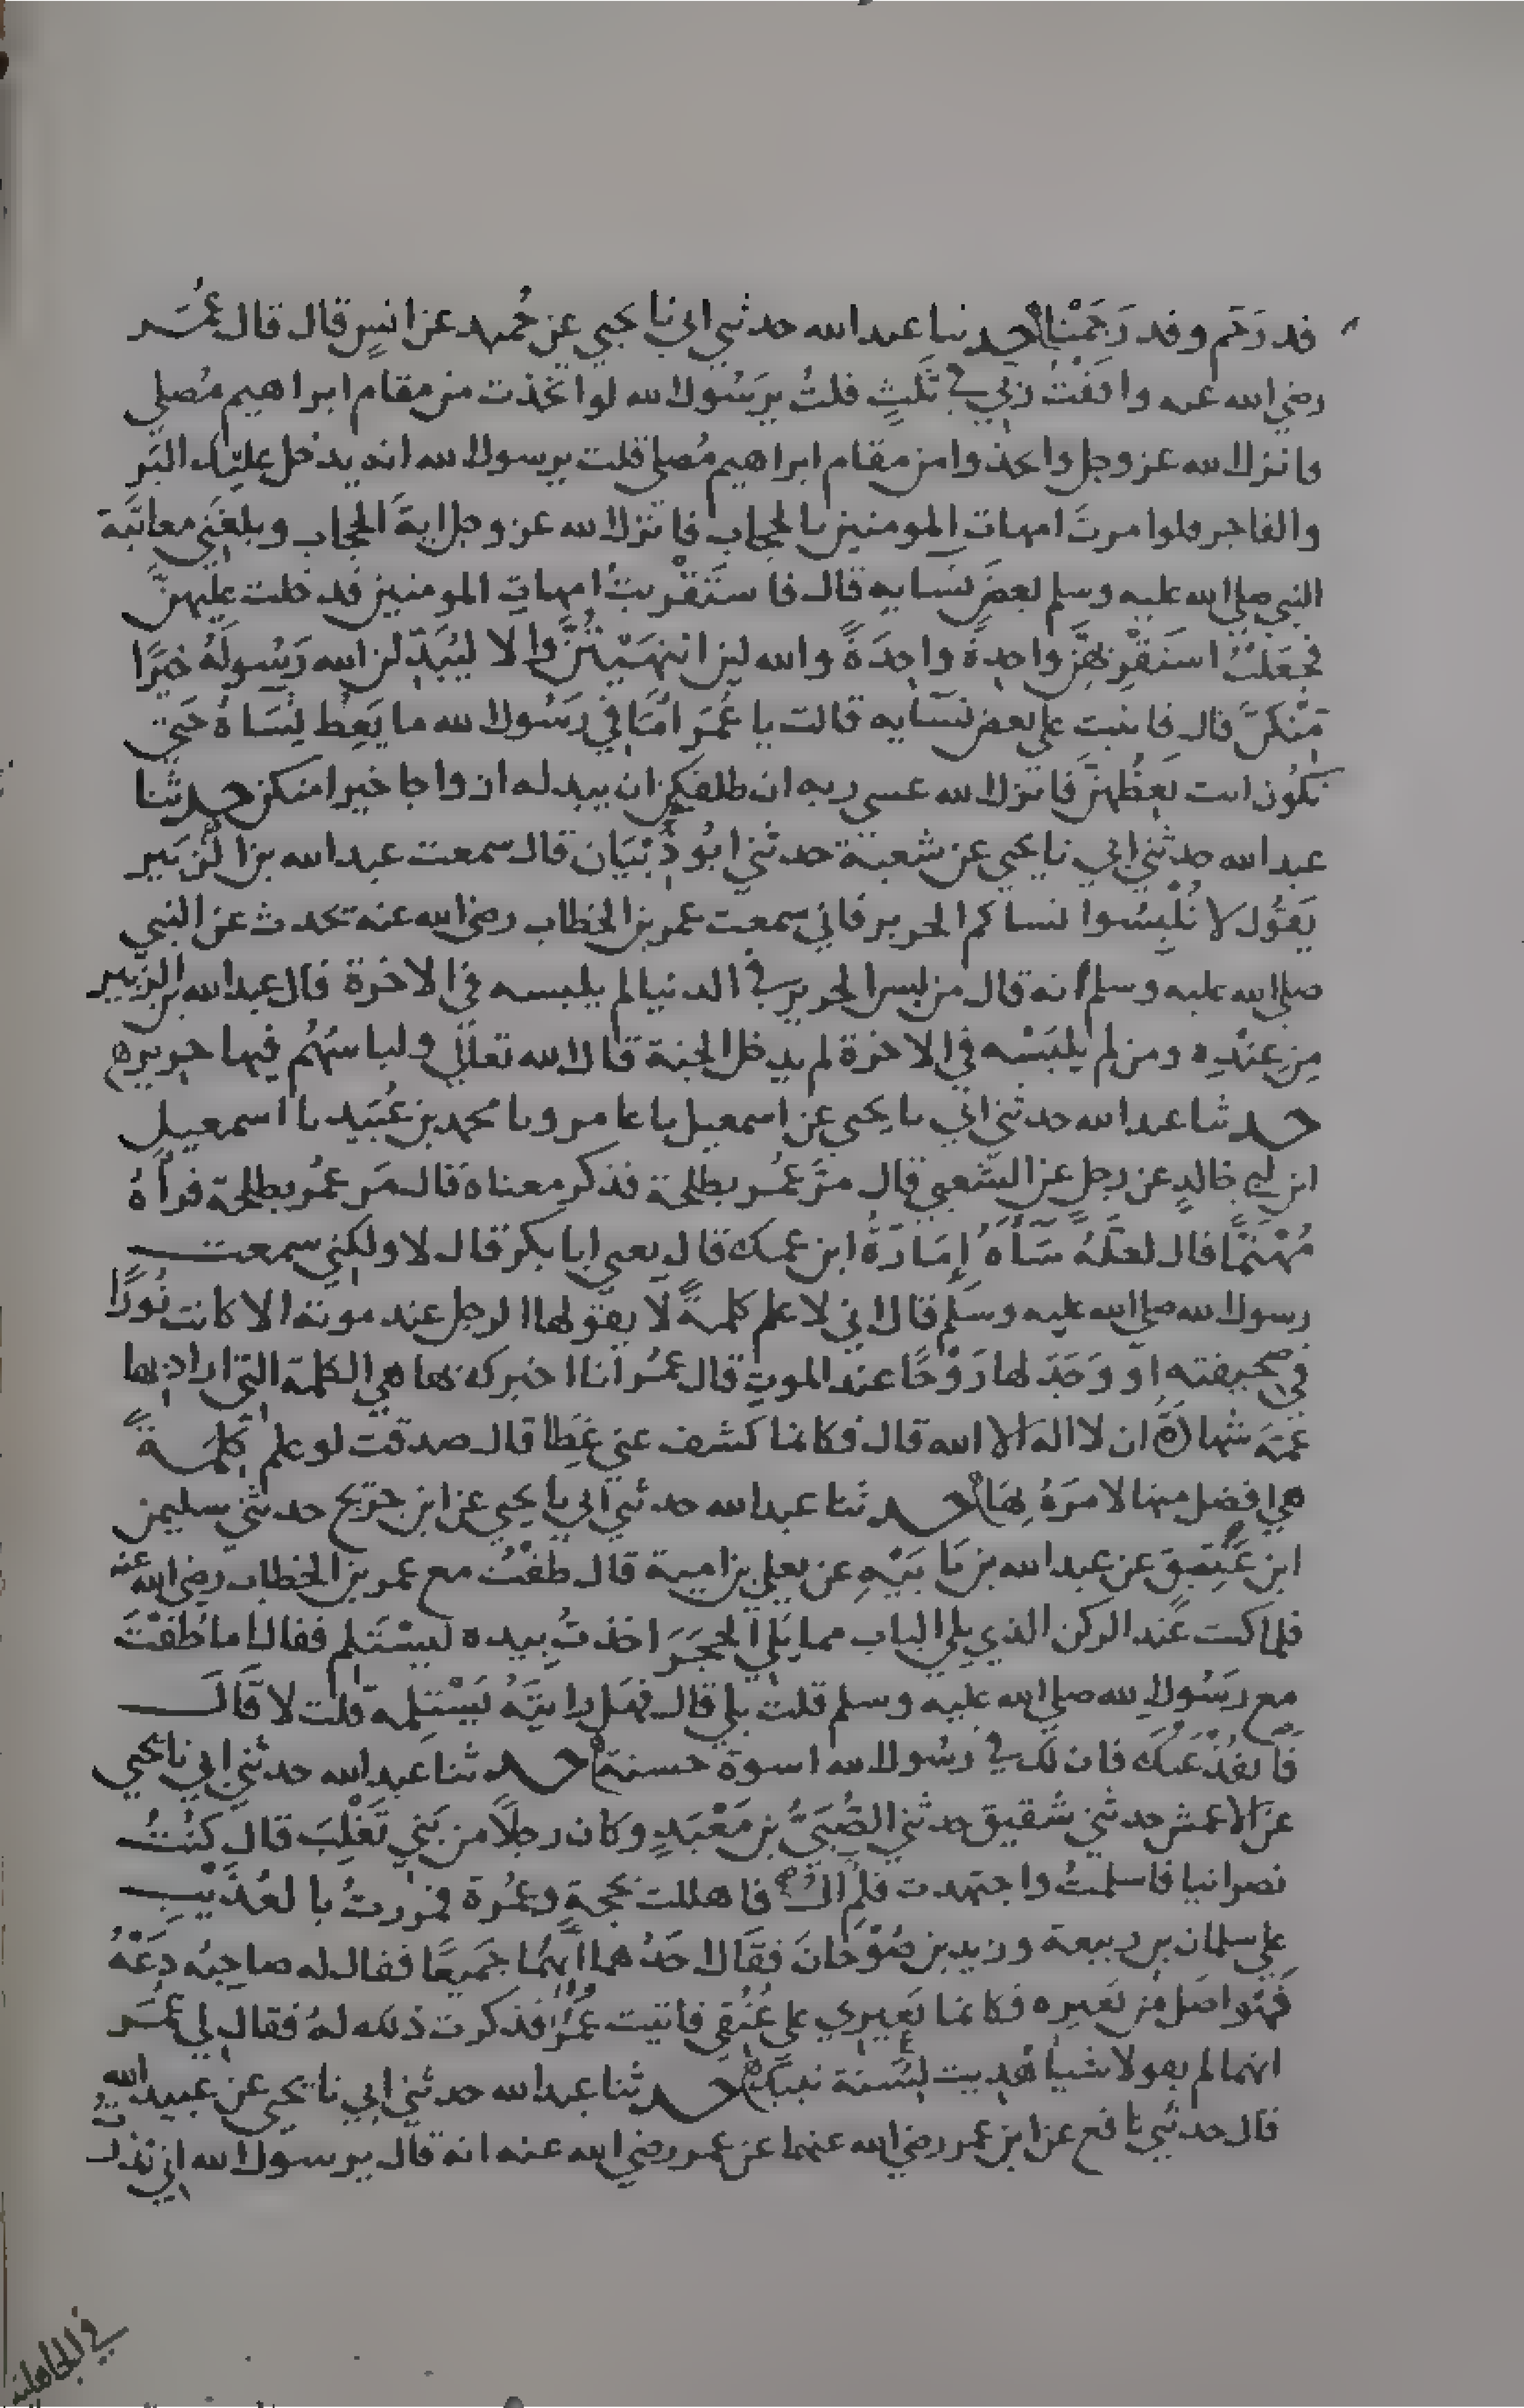 قد رَجَم وقد رَجَمْنا حدثنا عبد الله حدثني ابي نا يحيي عن حُميد عن انسٍ قال قال عُمَر
رضي الله عنه وافَقْتُ رَبي في ثَلثٍ قلتُ يرَسُول الله لو اتخذت من مقام ابراهيم مُصلي
فانزل الله عز وجل واتخذوا من مقام ابراهيم مُصلي قلت يرسول الله انه يدخل عليك البَر
والفاجر فلو امرتَ امهات المومنين بالحجاب فانزل الله عز وجل ايةَ الحجاب وبلغَني معاتبَة
النبي صلي الله عليه وسلم بعضَ نسَايه قال فاستَقْرَيتُ امهاتِ المومنين فدخلت عليهنَّ
فجعَلتُ استَقْرِيهنَّ واحِدةً واحِدَةً والله لين انتهَيْتُنَّ والا ليُبَدِّلن الله رَسُولَهُ خيرًا
مِنْكنَّ قال فاتيت علي بعض نسَايه قالت يا عُمَر امَا في رَسُول الله ما يَعِظ نِسَاهُ حَتي
تكُون انت تعِظُهنَّ فانزل الله عسي ربه ان طلقكن ان يبدله ازواجا خيرا منكن حدثنا
عبد الله حدثني ابي نا يحيي عن شعبة حدثني ابُو ذُبْيَان قال سمعت عبد الله بن الزُّبَير
يَقُول لا تُلْبِسُوا نساكم الحرير فاني سمعت عمر بن الخطاب رضي الله عنه تحدث عن النبي
صلي الله عليه وسلم انه قال من لبس الحرير في الدنيا لم يلبسه في الاخرة قال عبد الله بن الزبير
مِن عِنْدِه ومن لم يَلْبَسْه في الاخرة لم يدخل الجنة قال الله تعالي ولباسُهُم فيها حرير ه
حدثنا عبد الله حدثني ابي نا يحيي عن اسمعيل نا عامر ونا محمد بن عُبَيد نا اسمعيل
ابن ابي خالدٍ عن رجلٍ عن الشعبي قال مَرَّ عُمر بطلحة فذكر معناه قال مَر عمُر بطلحة فرأَهُ
مُهْتَمًّا قال لعَلَّهُ سَأَهُ إِمَارَةُ ابن عمك قال يعني ابا بكر قال لا ولكني سمعت
رسول الله صلي الله عليه وسلم قال اني لاعلم كلمةً لا يقولها الرجل عند موته الا كانت نُورًا
في صحيفته او وَجَدَ لها رَوْحًا عند الموتِ قال عمُر انا اخبرك بها هي الكلمة التي اراد بها
عَمَّهُ شهادة ان لا اله الا الله قال فكانما كشف عني غِطَا قال صدقت لو علم كلِمَةً
هي افضل منها لامرَهُ بِهَا حدثنا عبد الله حدثني ابي نا يحيي عن ابن جريج حدثني سليمن
ابن عَتِيق عن عبد الله بن بَابَيْهِ عن يعلي بن امية قال طُفْتُ مع عمر بن الخطاب رضي الله عنه
فلما كنت عند الركن الذي يلي الباب مما يَلي الحجَرَ اخذتُ بيده ليسْتَلِم فقال اما طُفتَ
مع رَسُولِ الله صلي الله عليه وسلم قلت بلي قال فهَل رايتَهُ يَسْتَلِمه قلت لا قَالَ
فانفُذْ عَنْكَ فان لك في رسُول الله اسوة حسنة حدثنا عبد الله حدثني ابي نا يحيي
عن الاعمش حدثني شَقيق حدثني الصُّبَيُّ بن مَعْبَدٍ وكان رجلاً من بَني تَغْلِبَ قال كنْتُ
نصرانيا فاسلمتُ واجتهدت فلم الُ فاهللت بحجةٍ وعمُرة فمررتُ بالعُذَيْبِ
علي سلمان بن ربيعة وزيد بن صُوْحَانَ فقَال احَدُهما ابهِمَا جَميعًا فقال له صاحِبُه دَعْهُ
فَهُو اضَل من بَعيرِه فكانما بَعيري علي عُنُقي فاتيت عُمَرَ فذكرت ذلك لهُ فقال لي عُمَر
انهما لم يقولا شيا هُدِيت لسُنة نبيك حدثنا عبد الله حدثني ابي نا يحيي عن عبيد الله
قال حدثني نافع عن ابن عمر رضي الله عنهما عن عمر رضي الله عنه انه قال يرسول الله اني نذرتُ
في الجاهلية